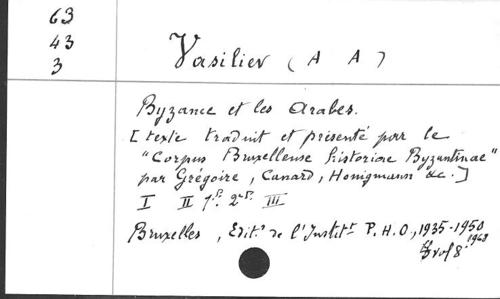 63
43
3
Vasiliev (A A)
Byzance et les Arabes.
[texte traduit et présenté pour le
"Corpus Bruxellense historiae Byzantinae"
par Grégoire, Canard, Honigmann &c.]
I II 1e p. 2e p. III
Bruxelles, Editns de l'Institt P.H.O, 1935-1950
1968
vol 8°